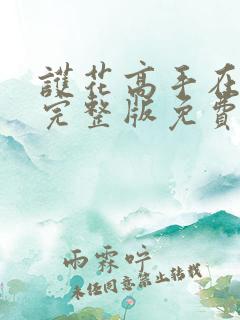 護花高手在
完整版免費
雨霖咛
未经同意禁止转载